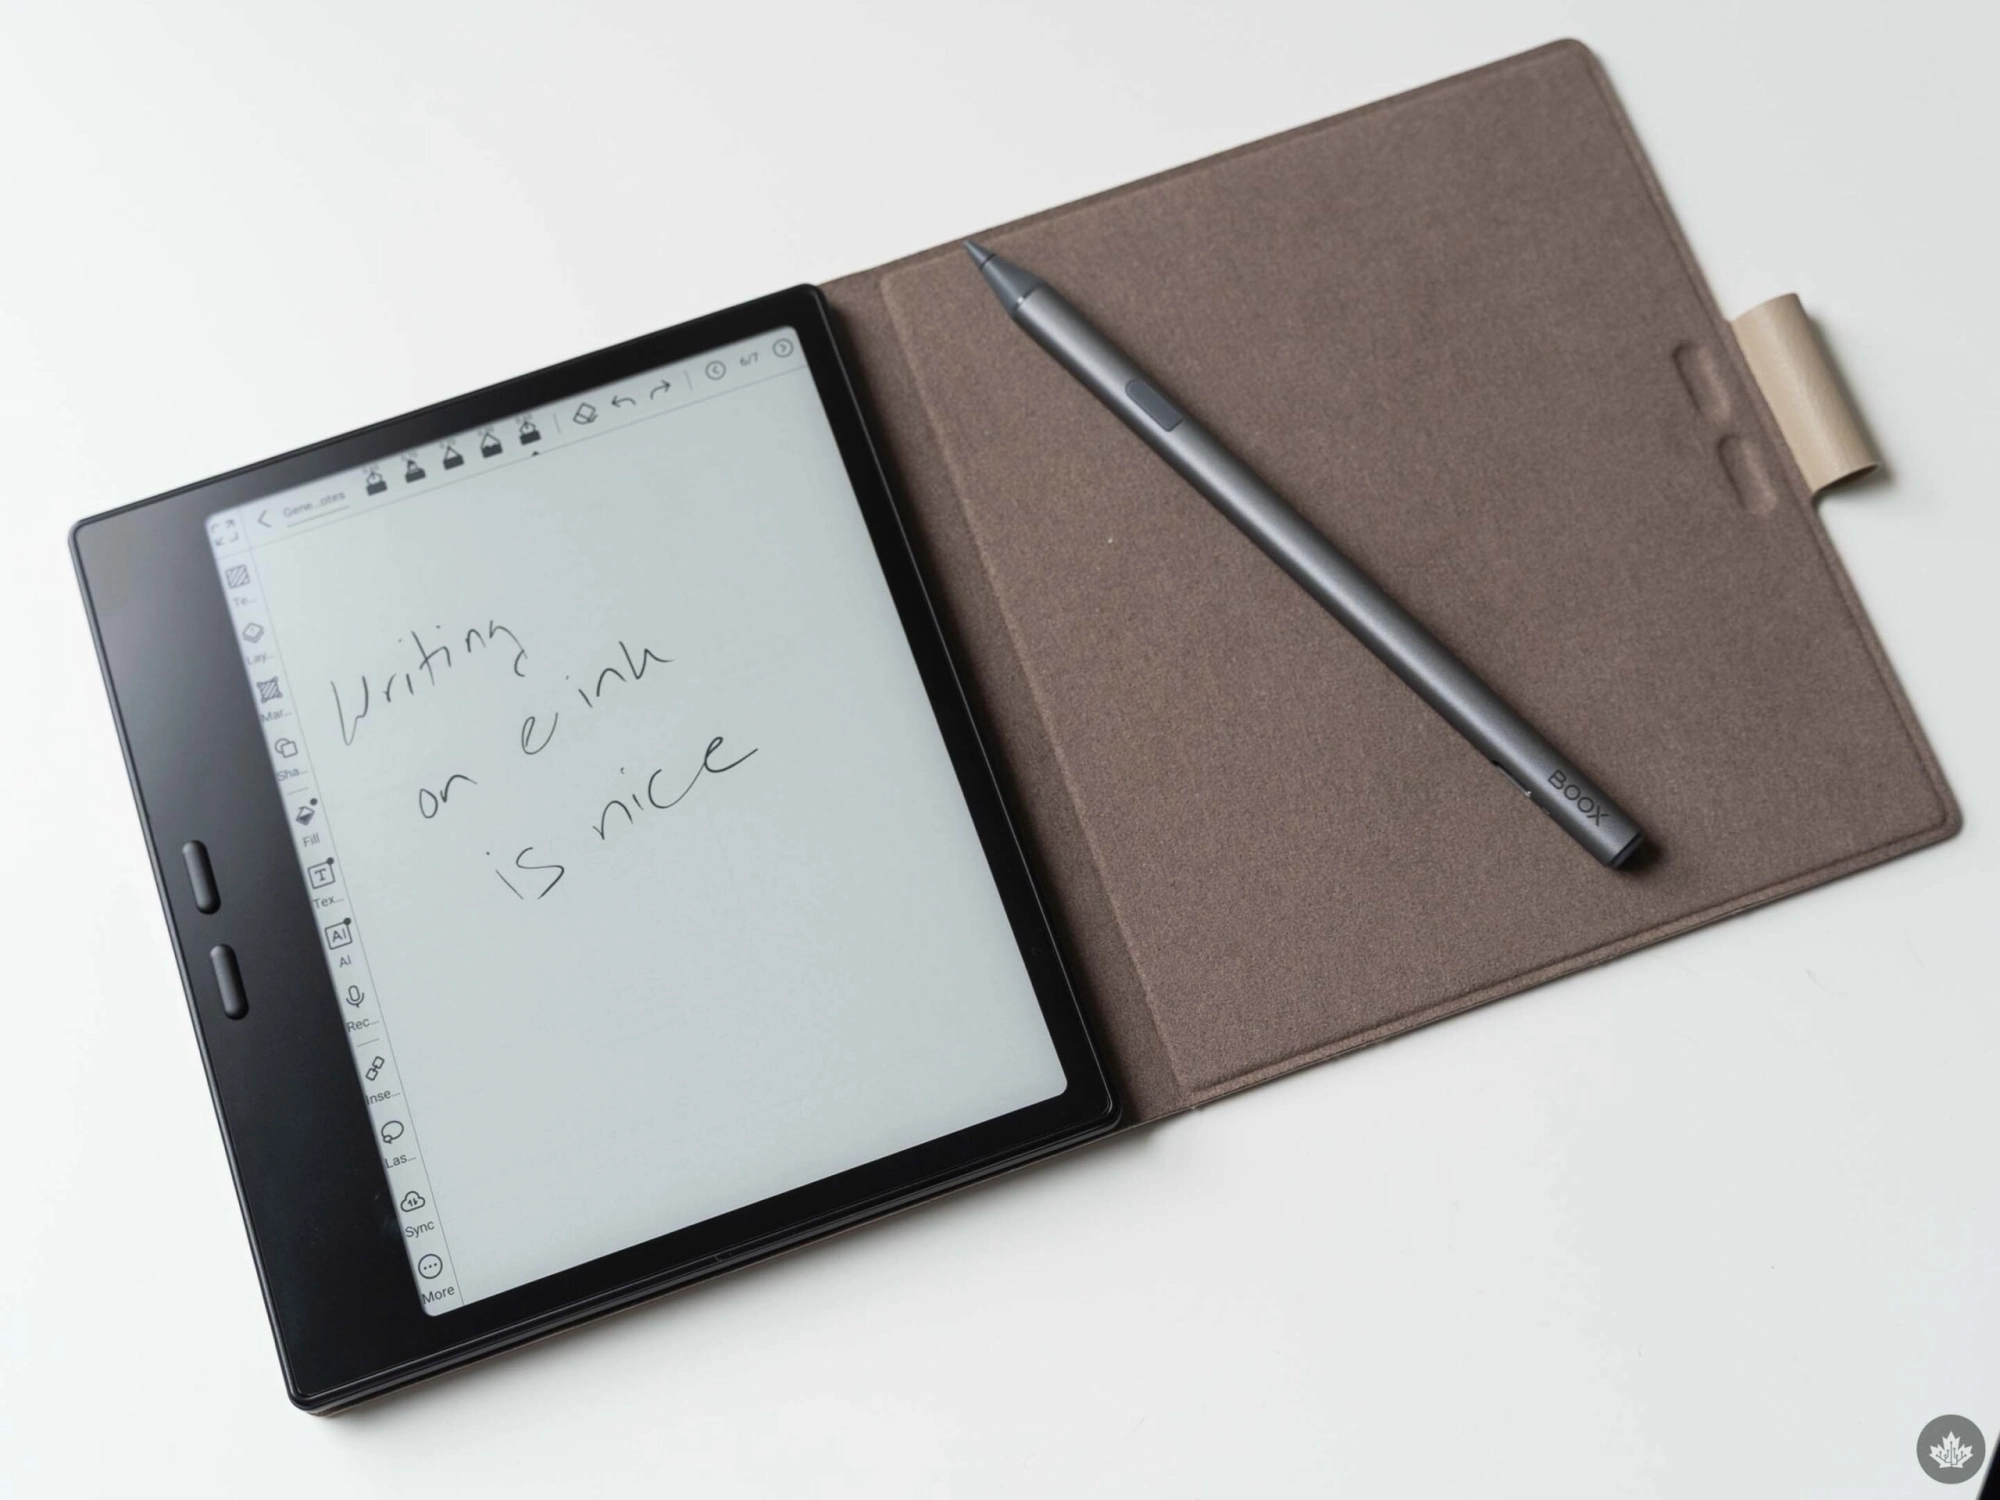 Gene...otes
6/7
Te...
Lay...
Mar...
Sha...
Fill
T
Tex...
AI
AI
Rec...
Inse...
Las...
Sync
More
Writing
on e ink
is nice
BOOX